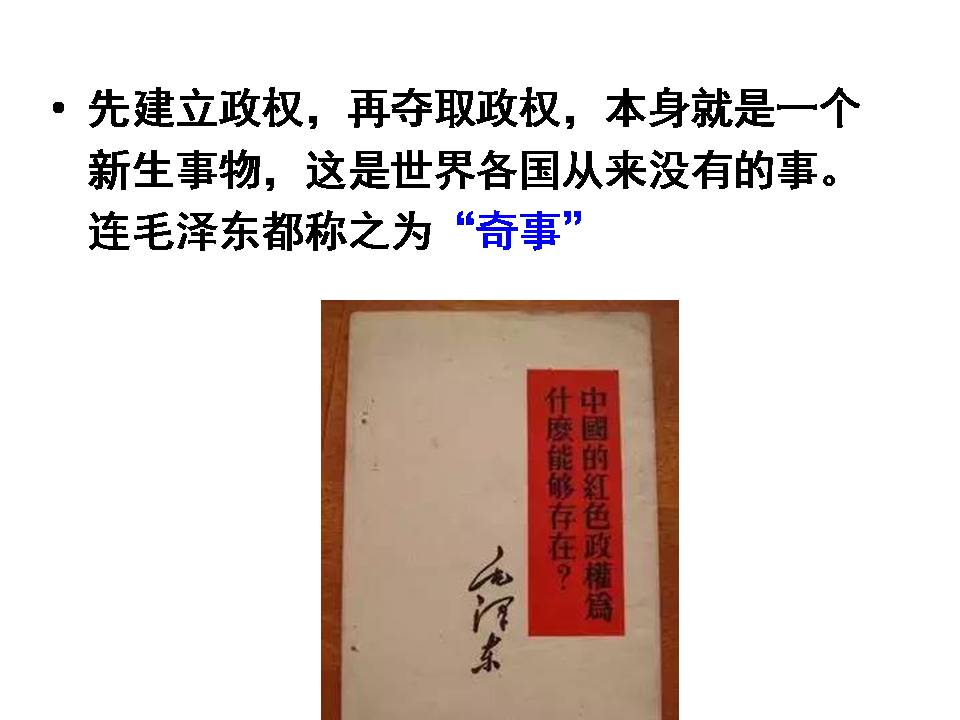 • 先建立政权，再夺取政权，本身就是一个
新生事物，这是世界各国从来没有的事。
连毛泽东都称之为“奇事”
中國的紅色政權爲
什麽能够存在？
毛澤东